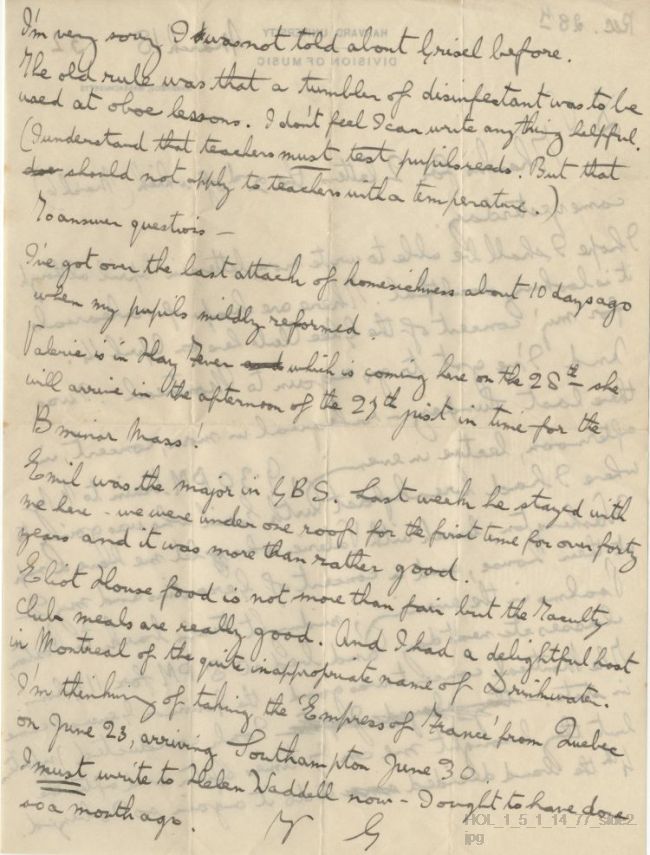 I'm very sorry I was not told about Grisel before.
The old rule was that a tumbler of disinfectant was to be
used at oboe lessons. I don't feel I can write anything helpful.
(I understand that teachers must test pupils reeds. But that
should not apply to teachers with a temperature.)
To answer questions —
I've got over the last attack of homesickness about 10 days ago
when my pupils mildly reformed.
Valerie is in Hay Fever which is coming here on the 28th - she
will arrive in the afternoon of the 27th just in time for the
B minor Mass!
Emil was the major in GBS. Last week he stayed with
me here - we were under one roof for the first time for over forty
years and it was more than rather good.
Eliot House food is not more than fair but the Faculty
Club meals are really good. And I had a delightful host
in Montreal of the quite inappropriate name of Drinkwater.
I'm thinking of taking the 'Empress of France' from Quebec
on June 23, arriving Southampton June 30.
I must write to Helen Waddell now - I ought to have done
so a month ago.
G
HOL_1_5_1_14_77_side2.
jpg
HARVARD UNIVERSITY
DIVISION OF MUSIC